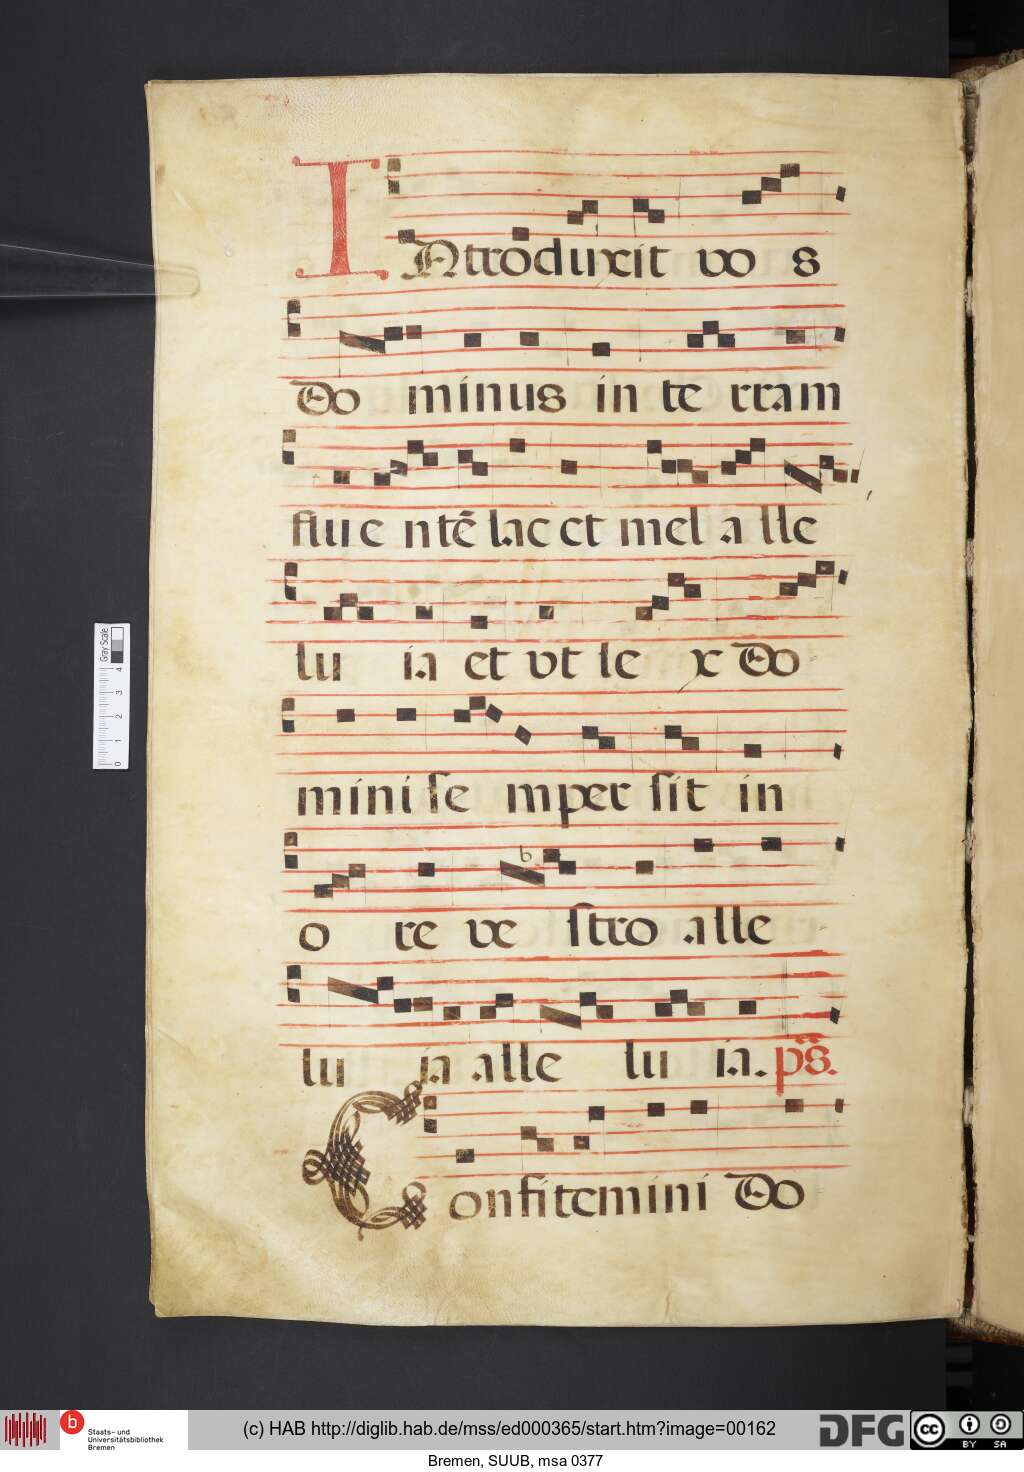 INtroduxit vo s
Do minus in te rram
flu e ntē lac et mel a lle
lu ia et ut le x Do
mini se mper sit in
o re ve stro alle
lu ia alle lu ia. ps̄.
Confitemini Do
b
Gray Scale
4
3
2
1
0
b
Staats- und
Universitätsbibliothek
Bremen
(c) HAB http://diglib.hab.de/mss/ed000365/start.htm?image=00162
DFG
cc BY SA
Bremen, SUUB, msa 0377